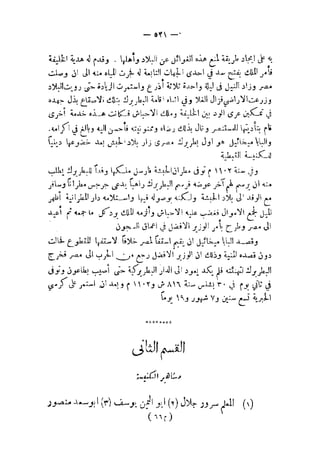 — ٥٢١ —
به على ايجاد طريقة لمنع هذه الغوائل عن البلاد واهلها . وقدم له هدية الخليفة
فأمر الملك بفتح سد في احدى الجهات التابعة له فجرت المياه منه الى ان وصلت
مصر وزاد النيل في ليلة واحدة ثلاثة أذرع واستمرت الزيادة حتى رويت البلاد
وزرعت الاراضي فزال الغلا وفي اثناء اقامة البطريرك بتلك الاصقاع بذل جهده
في تمكين عرى الود بين الخليفة وملك الاحباش فكانت هذه خدمة أخرى
قام بتأديتها للمستنصر ونال بذلك رضاه وممنونيته فأحسن اليه وبالغ في اكرامه.
والبابا ميخائيل هو اول بطريرك مصرى زار بلاد الحبش بعد خضوعها دينياً
للكنيسة القبطية
وفي سنة ١١٠٢ م توفى مطران الحبشة فارسل ملكها وفداً للبطريرك يطلب
منه ان يرسم لهم آخر عوضه فرسم البطريرك راهباً يدعى جرجس مطراناً وسافر
مع الوفد الى بلاد الحبشة ولكنه بوصوله فيها واستلامه دار المطرانية أظهر
الميل لجمع الاموال فغضب عليه الاحباش وألزمه الملك برد كل ما جمعه ثم أعيد
الى مصر وطرح بأمر الوزير الافضل في اعماق السجون
وقصد البابا ميخائيل ان يقيم اسقفاً لمصر خلافاً لاسقفها المقطوع فحالت
دون قصده المنية وذلك ان الوزير الافضل رجع من الحرب الى مصر فخرج
البطريرك لتهنئته فلم يكد يعود الى الدار البطريركية حتى أصيب بطاعون وتوفى
في ثاني يوم في ٣٠ بشنس سنة ٨١٦ ش و ١١٠٢ م بعد ان استمر على كرسي
الحبرية تسع سنين و٧ شهور و١٩ يوماً
********
القسم الثاني
مشاهير الكنيسة
(١) المعلم سرور جلال (٢) ابو اليمن يوسف (٣) ابو سعد منصور
(٦٦ م)